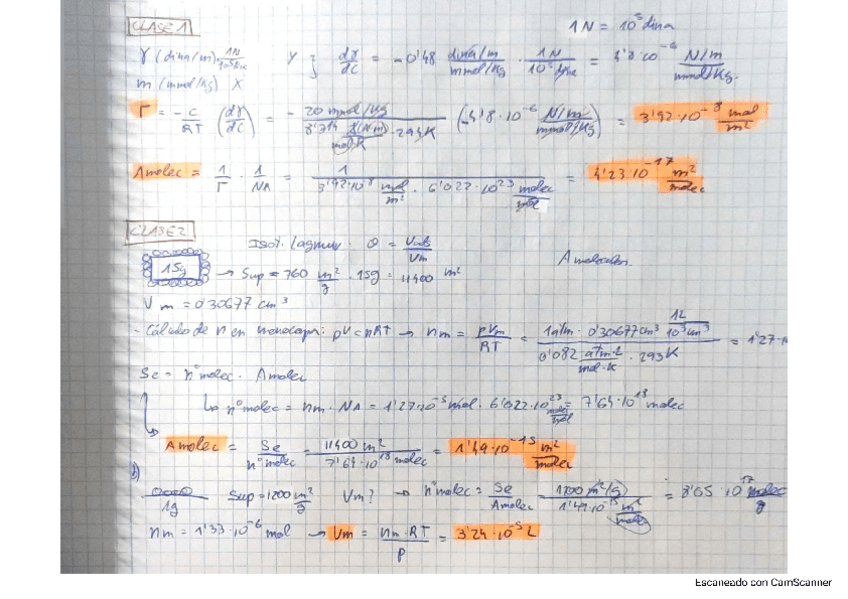 CLASE 1
1N = 10⁵ dina
γ (dina/m) 1N/10⁵ dine Y } dγ/dc = -0'48 dina/m / mmol/Kg · 1N/10⁵ dine = 4'8·10⁻⁶ N/m / mmol/Kg.
m (mmol/Kg) X
Γ = -c/RT (dγ/dc) = - 20 mmol/Kg / 8'314 J(N·m)/mol·K · 294K (-4'8·10⁻⁶ N/m / mmol/Kg) = 3'92·10⁻⁸ mol/m²
Amolec = 1/Γ · 1/NA = 1 / 3'92·10⁻⁸ mol/m² · 6'022·10²³ molec/mol = 4'23·10⁻¹⁷ m²/molec
CLASE 2
Isot. Lagmuir. θ = Vads/Vm
15g → Sup = 760 m²/g · 15g = 11400 m² Amolecular
Vm = 0'30677 cm³
- Cálculo de n en monocapa: pV = nRT → nm = pVm/RT = 1atm · 0'30677cm³ 1L/10³cm³ / 0'082 atm·L/mol·K · 293K = 1'27·1
Se = nº molec · Amolec
↳ nº molec = nm · NA = 1'27·10⁻⁵ mol · 6'022·10²³ molec/mol = 7'64·10¹⁸ molec
Amolec = Se/nº molec = 11400 m² / 7'64·10¹⁸ molec = 1'49·10⁻¹⁵ m²/molec
b)
1g Sup = 1200 m²/g Vm? → nº molec = Se/Amolec = 1200 m²/g / 1'49·10⁻¹⁵ m²/molec = 8'05·10¹⁷ molec/g
nm = 1'33·10⁻⁶ mol → Vm = nm·RT/p = 3'24·10⁻⁵ L
Escaneado con CamScanner